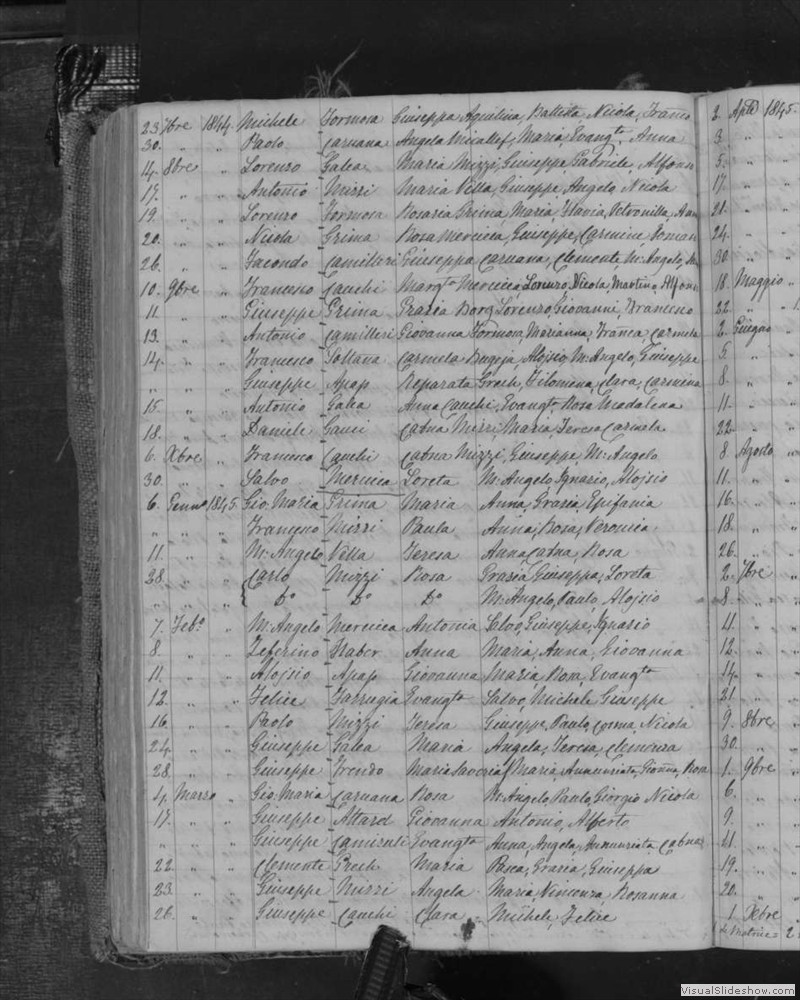 23. 7bre 1844. Michele Formosa Giuseppa Aquilina, Battista, Nicola, Franco
30. " " Paolo Caruana Angela Micallef, Maria, Evangta, Anna
14. 8bre " Lorenzo Galea Maria Mizzi, Giuseppe, Gabriele, Alfons
17. " " Antonio Mizzi Maria Vella, Giuseppe, Angelo, Nicola
19. " " Lorenzo Formosa Rosaria Grima, Maria, Flavia, Petronilla, Ann
20. " " Nicola Grima Rosa Mercieca, Giuseppe, Carmine
26. " " Camilleri Giuseppa Caruana, Clemente, M. Angelo,
10. 9bre " Francesco Cauchi Margta Mercieca, Lorenzo, Nicola, Martino, Alfons
11. " " Giuseppe Grima Grazia Borg, Lorenzo, Giovanni, Francesco
13. " " Antonio Camilleri Giovanna Formosa, Marianna, Franca, Carmela
14. " " Francesco Sultana Carmela Bugeja, Alojsio, M. Angelo, Giuseppe
" " " Giuseppe Apap Reparata Grech, Filomena, Clara, Carmina
15. " " Antonio Galea Anna Cauchi, Evangta, Rosa, Madalena
18. " " Daniele Gauci Catna Mizzi, Maria, Teresa, Carmela
6. Xbre " Francesco Cauchi Catna Mizzi, Giuseppe, M. Angelo
30. " " Salvo Mercieca Loreta M. Angelo, Ignazio, Alojsio
6. Genno 1845. Gio. Maria Grima Maria Anna, Grazia, Epifania
" " " Francesco Mizzi Paula Anna, Rosa, Veronica
11. " " M. Angelo Vella Teresa Anna, Catna, Rosa
28. " " Carlo Mizzi Rosa Grazia, Giuseppa, Loreta
" " " Do Do Do M. Angelo, Paulo, Alojsio
7. Febo " M. Angelo Mercieca Antonia Salvo, Giuseppe, Ignazio
8. " " Zeferino Anna Maria, Anna, Giovanna
11. " " Alojsio Apap Giovanna Maria, Rosa, Evangta
12. " " Felice Farrugia Evangta Salvo, Michele, Giuseppe
16. " " Paolo Mizzi Teresa Giuseppe, Paulo, Cosma, Nicola
24. " " Giuseppe Galea Maria Angela, Teresa, Clemenza
28. " " Giuseppe Maria Saveria Maria, Annunziata, Rosa
4. Marzo " Gio. Maria Caruana Rosa M. Angelo, Paulo, Giorgio, Nicola
17. " " Giuseppe Attard Giovanna Antonio, Alberto
" " " Giuseppe Evangta Anna, Angela, Annunziata, Catna
22. " " Clemente Grech Maria Pasca, Grazia, Giuseppa
23. " " Giuseppe Mizzi Angela Maria, Vincenza, Rosanna
26. " " Giuseppe Cauchi Clara Michele, Felice
2. 1845.
3. " "
5. " "
17. " "
21. " "
24. " "
30. " "
18. Maggio "
22. " "
2. Giugno "
5. " "
8. " "
11. " "
22. " "
8. Agosto "
11. " "
16. " "
18. " "
26. " "
2. 7bre "
8. " "
11. " "
12. " "
14. " "
21. " "
9. 8bre "
30. " "
1. 9bre "
6. " "
9. " "
11. " "
19. " "
20. " "
1. Xbre
VisualSlideshow.com